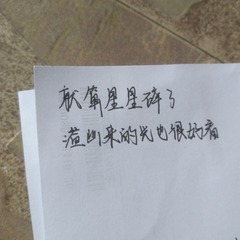 就算星星碎了
溢出来的光也很好看